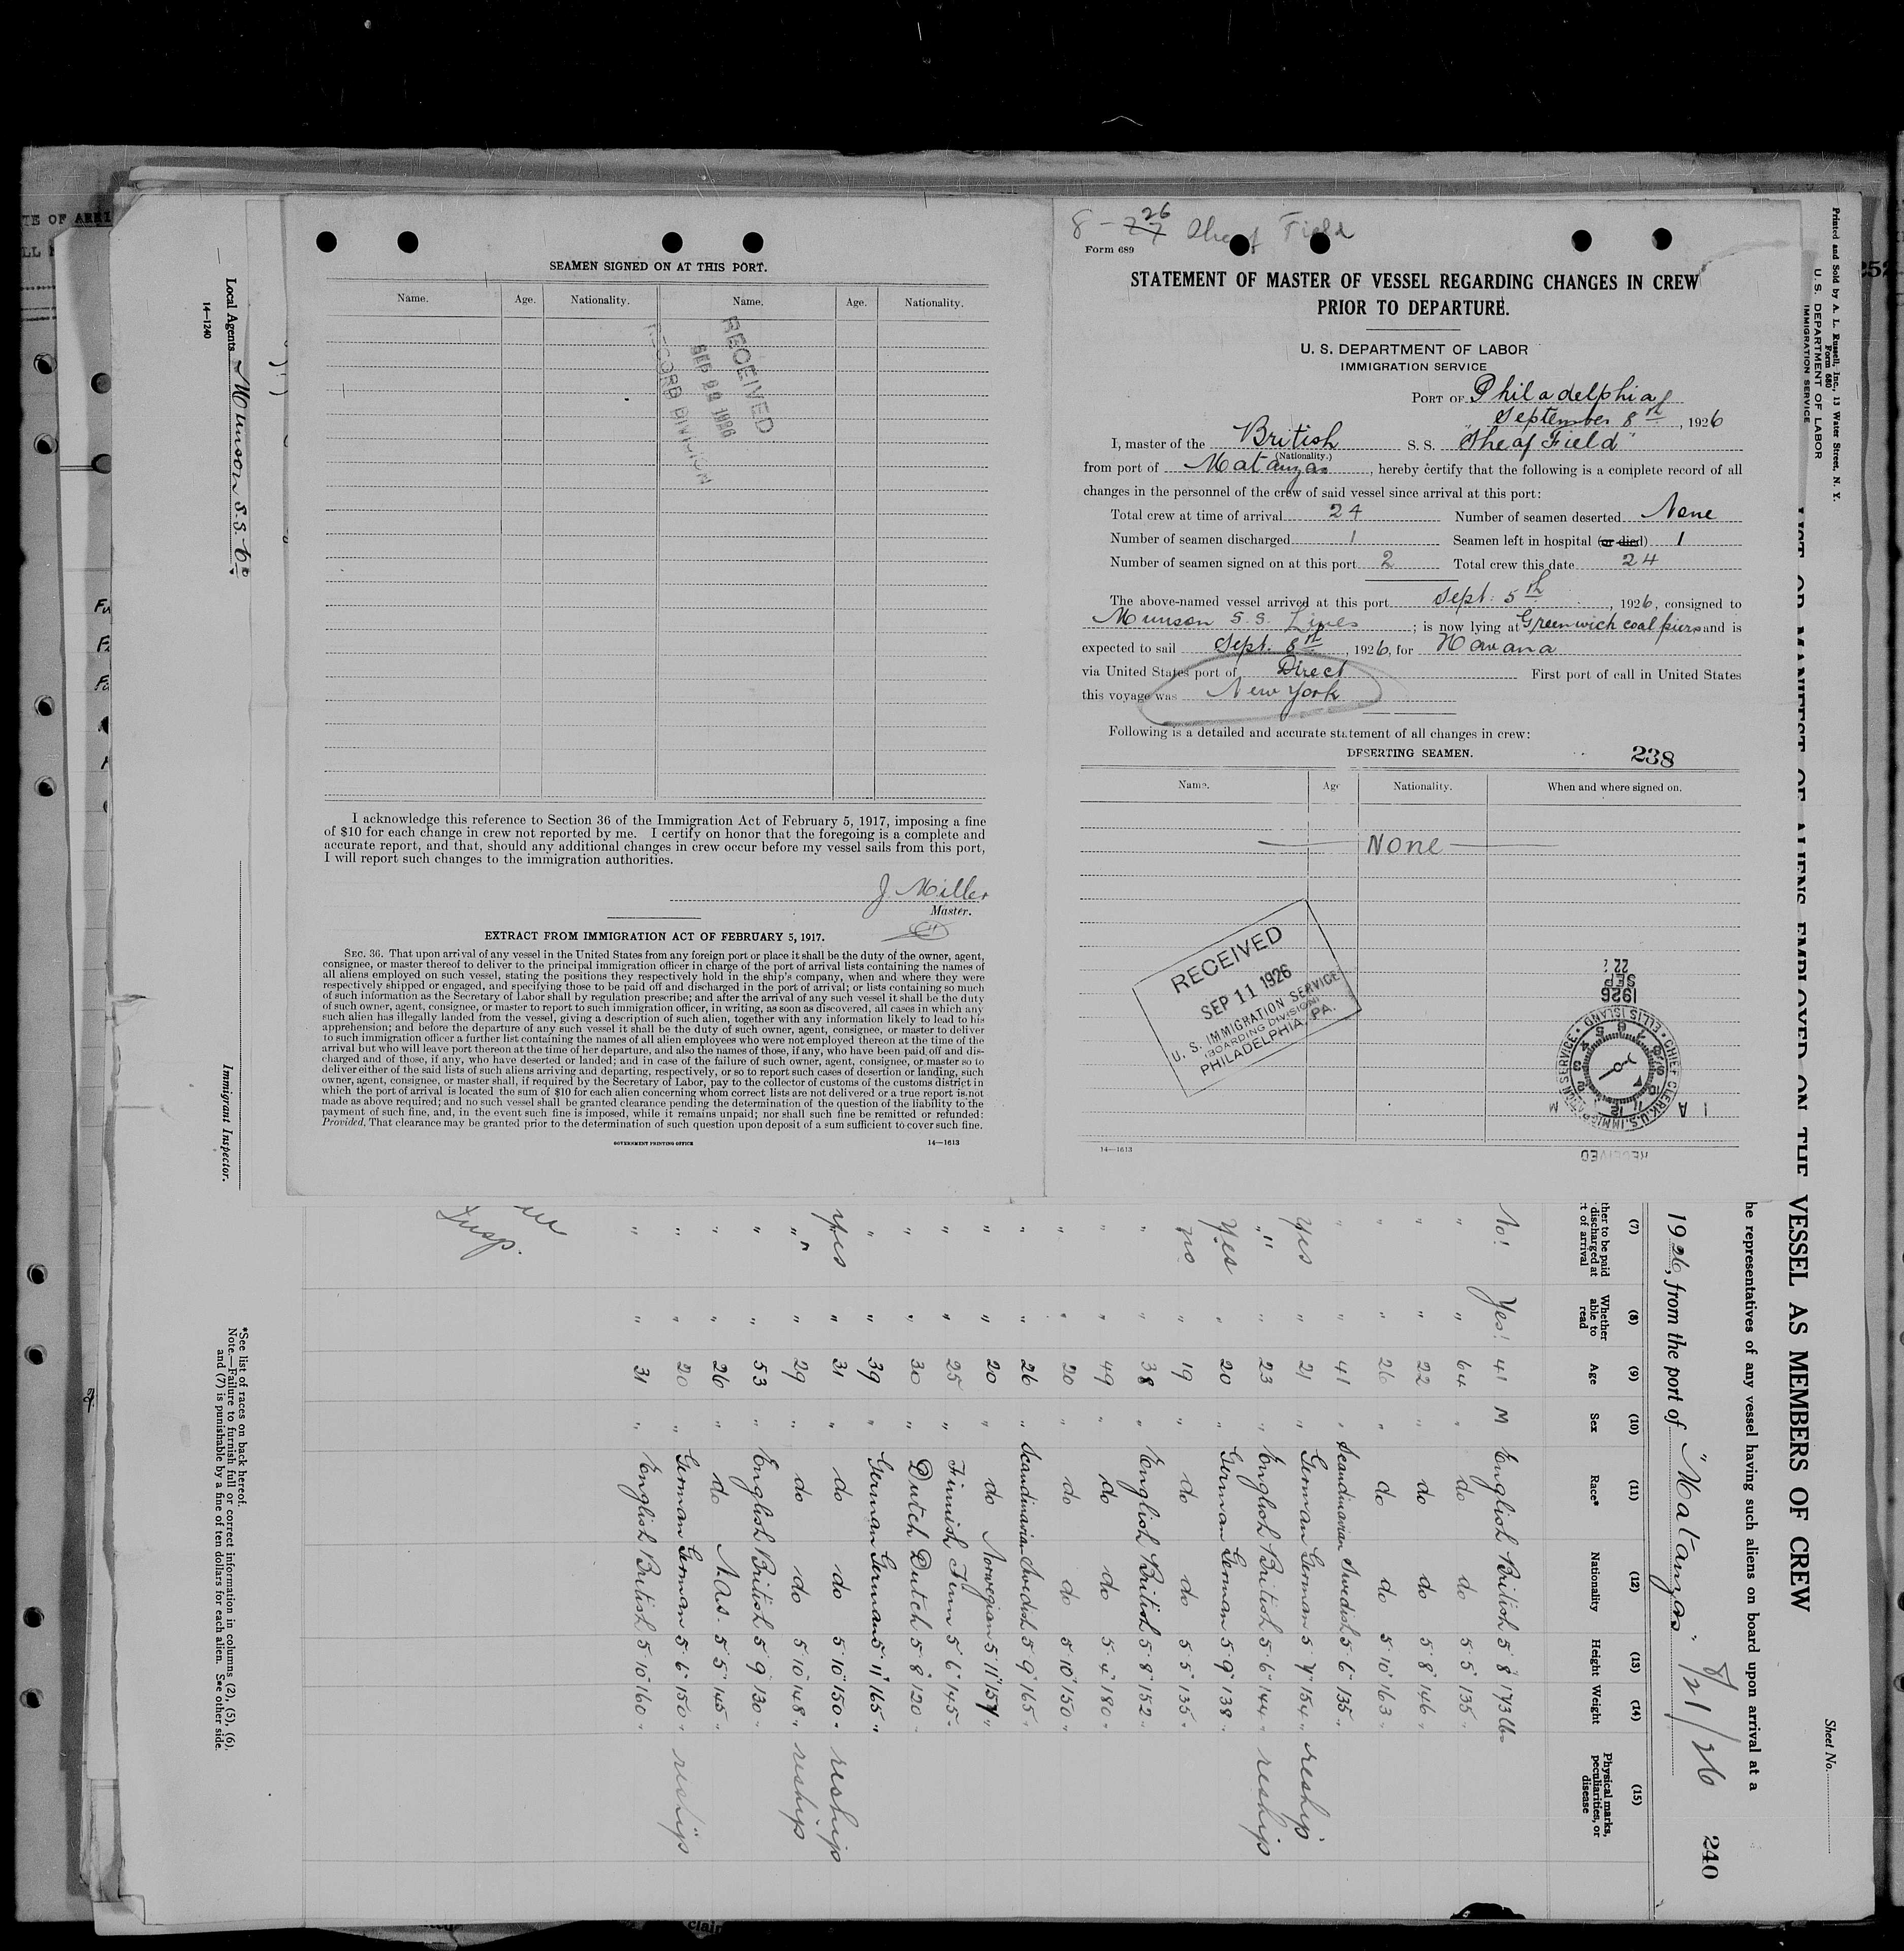 SEAMEN SIGNED ON AT THIS PORT.
Name. Age. Nationality. Name. Age. Nationality.
RECEIVED
RECORD DIVISION
I acknowledge this reference to Section 36 of the Immigration Act of February 5, 1917, imposing a fine
of $10 for each change in crew not reported by me. I certify on honor that the foregoing is a complete and
accurate report, and that, should any additional changes in crew occur before my vessel sails from this port,
I will report such changes to the immigration authorities.
J. Miller
Master.
EXTRACT FROM IMMIGRATION ACT OF FEBRUARY 5, 1917.
SEC. 36. That upon arrival of any vessel in the United States from any foreign port or place it shall be the duty of the owner, agent,
consignee, or master thereof to deliver to the principal immigration officer in charge of the port of arrival lists containing the names of
all aliens employed on such vessel, stating the positions they respectively hold in the ship's company, when and where they were
respectively shipped or engaged, and specifying those to be paid off and discharged in the port of arrival; or lists containing so much
of such information as the Secretary of Labor shall by regulation prescribe; and after the arrival of any such vessel it shall be the duty
of such owner, agent, consignee, or master to report to such immigration officer, in writing, as soon as discovered, all cases in which any
such alien has illegally landed from the vessel, giving a description of such alien, together with any information likely to lead to his
apprehension; and before the departure of any such vessel it shall be the duty of such owner, agent, consignee, or master to deliver
to such immigration officer a further list containing the names of all alien employees who were not employed thereon at the time of the
arrival but who will leave port thereon at the time of her departure, and also the names of those, if any, who have been paid off and dis-
charged and of those, if any, who have deserted or landed; and in case of the failure of such owner, agent, consignee, or master so to
deliver either of the said lists of such aliens arriving and departing, respectively, or so to report such cases of desertion or landing, such
owner, agent, consignee, or master shall, if required by the Secretary of Labor, pay to the collector of customs of the customs district in
which the port of arrival is located the sum of $10 for each alien concerning whom correct lists are not delivered or a true report is not
made as above required; and no such vessel shall be granted clearance pending the determination of the question of the liability to the
payment of such fine, and, in the event such fine is imposed, while it remains unpaid; nor shall such fine be remitted or refunded:
Provided, That clearance may be granted prior to the determination of such question upon deposit of a sum sufficient to cover such fine.
GOVERNMENT PRINTING OFFICE 14—1613
8 - 27 26 Sheaf Field
Form 689
STATEMENT OF MASTER OF VESSEL REGARDING CHANGES IN CREW
PRIOR TO DEPARTURE.
U. S. DEPARTMENT OF LABOR
IMMIGRATION SERVICE
PORT OF Philadelphia
September 8th, 1926
I, master of the British S. S. "Sheaf Field"
(Nationality.)
from port of Matanzas, hereby certify that the following is a complete record of all
changes in the personnel of the crew of said vessel since arrival at this port:
Total crew at time of arrival 24 Number of seamen deserted None
Number of seamen discharged 1 Seamen left in hospital (or died) 1
Number of seamen signed on at this port 2 Total crew this date 24
The above-named vessel arrived at this port Sept. 5th, 1926, consigned to
Munson S. S. Lines; is now lying at Greenwich coal piers and is
expected to sail Sept. 8th, 1926, for Havana
via United States port of Direct First port of call in United States
this voyage was New York
Following is a detailed and accurate statement of all changes in crew:
DESERTING SEAMEN. 238
Name. Age Nationality. When and where signed on.
None
RECEIVED
SEP 11 1926
U. S. IMMIGRATION SERVICE
(BOARDING DIVISION)
PHILADELPHIA, PA.
1926
SEP
22
CHIEF CLERK, U.S. IMMIGRATION SERVICE • ELLIS ISLAND
RECEIVED
14—1613
Printed and Sold by A. L. Russell, Inc., 13 Water Street, N. Y.
Form 680
U. S. DEPARTMENT OF LABOR
IMMIGRATION SERVICE
Sheet No.
LIST OR MANIFEST OF ALIENS EMPLOYED ON THE VESSEL AS MEMBERS OF CREW
he representatives of any vessel having such aliens on board upon arrival at a
1926, from the port of "Matanzas" 8/21/26 240
(7) (8) (9) (10) (11) (12) (13) (14) (15)
ther to be paid discharged at t of arrival Whether able to read Age Sex Race* Nationality Height Weight Physical marks, peculiarities, or disease
No! Yes! 41 M English British 5 8" 173 lbs
" " 64 " do do 5 5" 135 "
" " 22 " do do 5 8" 146 "
" " 26 " do do 5 10" 163 "
" " 41 " Scandinavian Swedish 5 6" 135 "
Yes " 21 " German German 5 7" 154 " reship
" " 23 " English British 5 6" 144 " reship
Yes " 20 " German German 5 9" 138 "
no " 19 " do do 5 5" 135 "
" " 38 " English British 5 8" 152 "
" " 49 " do do 5 4" 180 "
" " 20 " do do 5 10" 150 "
" " 26 " Scandinavian Swedish 5 9" 165 "
" " 20 " do Norwegian 5 11" 157 "
" " 25 " Finnish Finn 5 6" 145 "
" " 30 " Dutch Dutch 5 8" 120 "
" " 39 " German German 5 11" 165 "
yes " 31 " do do 5 10" 150 " reship
" " 29 " do do 5 10" 148 " reship
" " 53 " English British 5 9" 130 "
" " 26 " do 5 5" 145 "
" " 20 " German German 5 6" 150 " reship
" " 31 " English British 5 10" 160 "
Insp.
Local Agents Munson S.S. Co.
14—1240
Immigrant Inspector.
*See list of races on back hereof.
Note.—Failure to furnish full or correct information in columns (2), (5), (6),
and (7) is punishable by a fine of ten dollars for each alien. See other side.